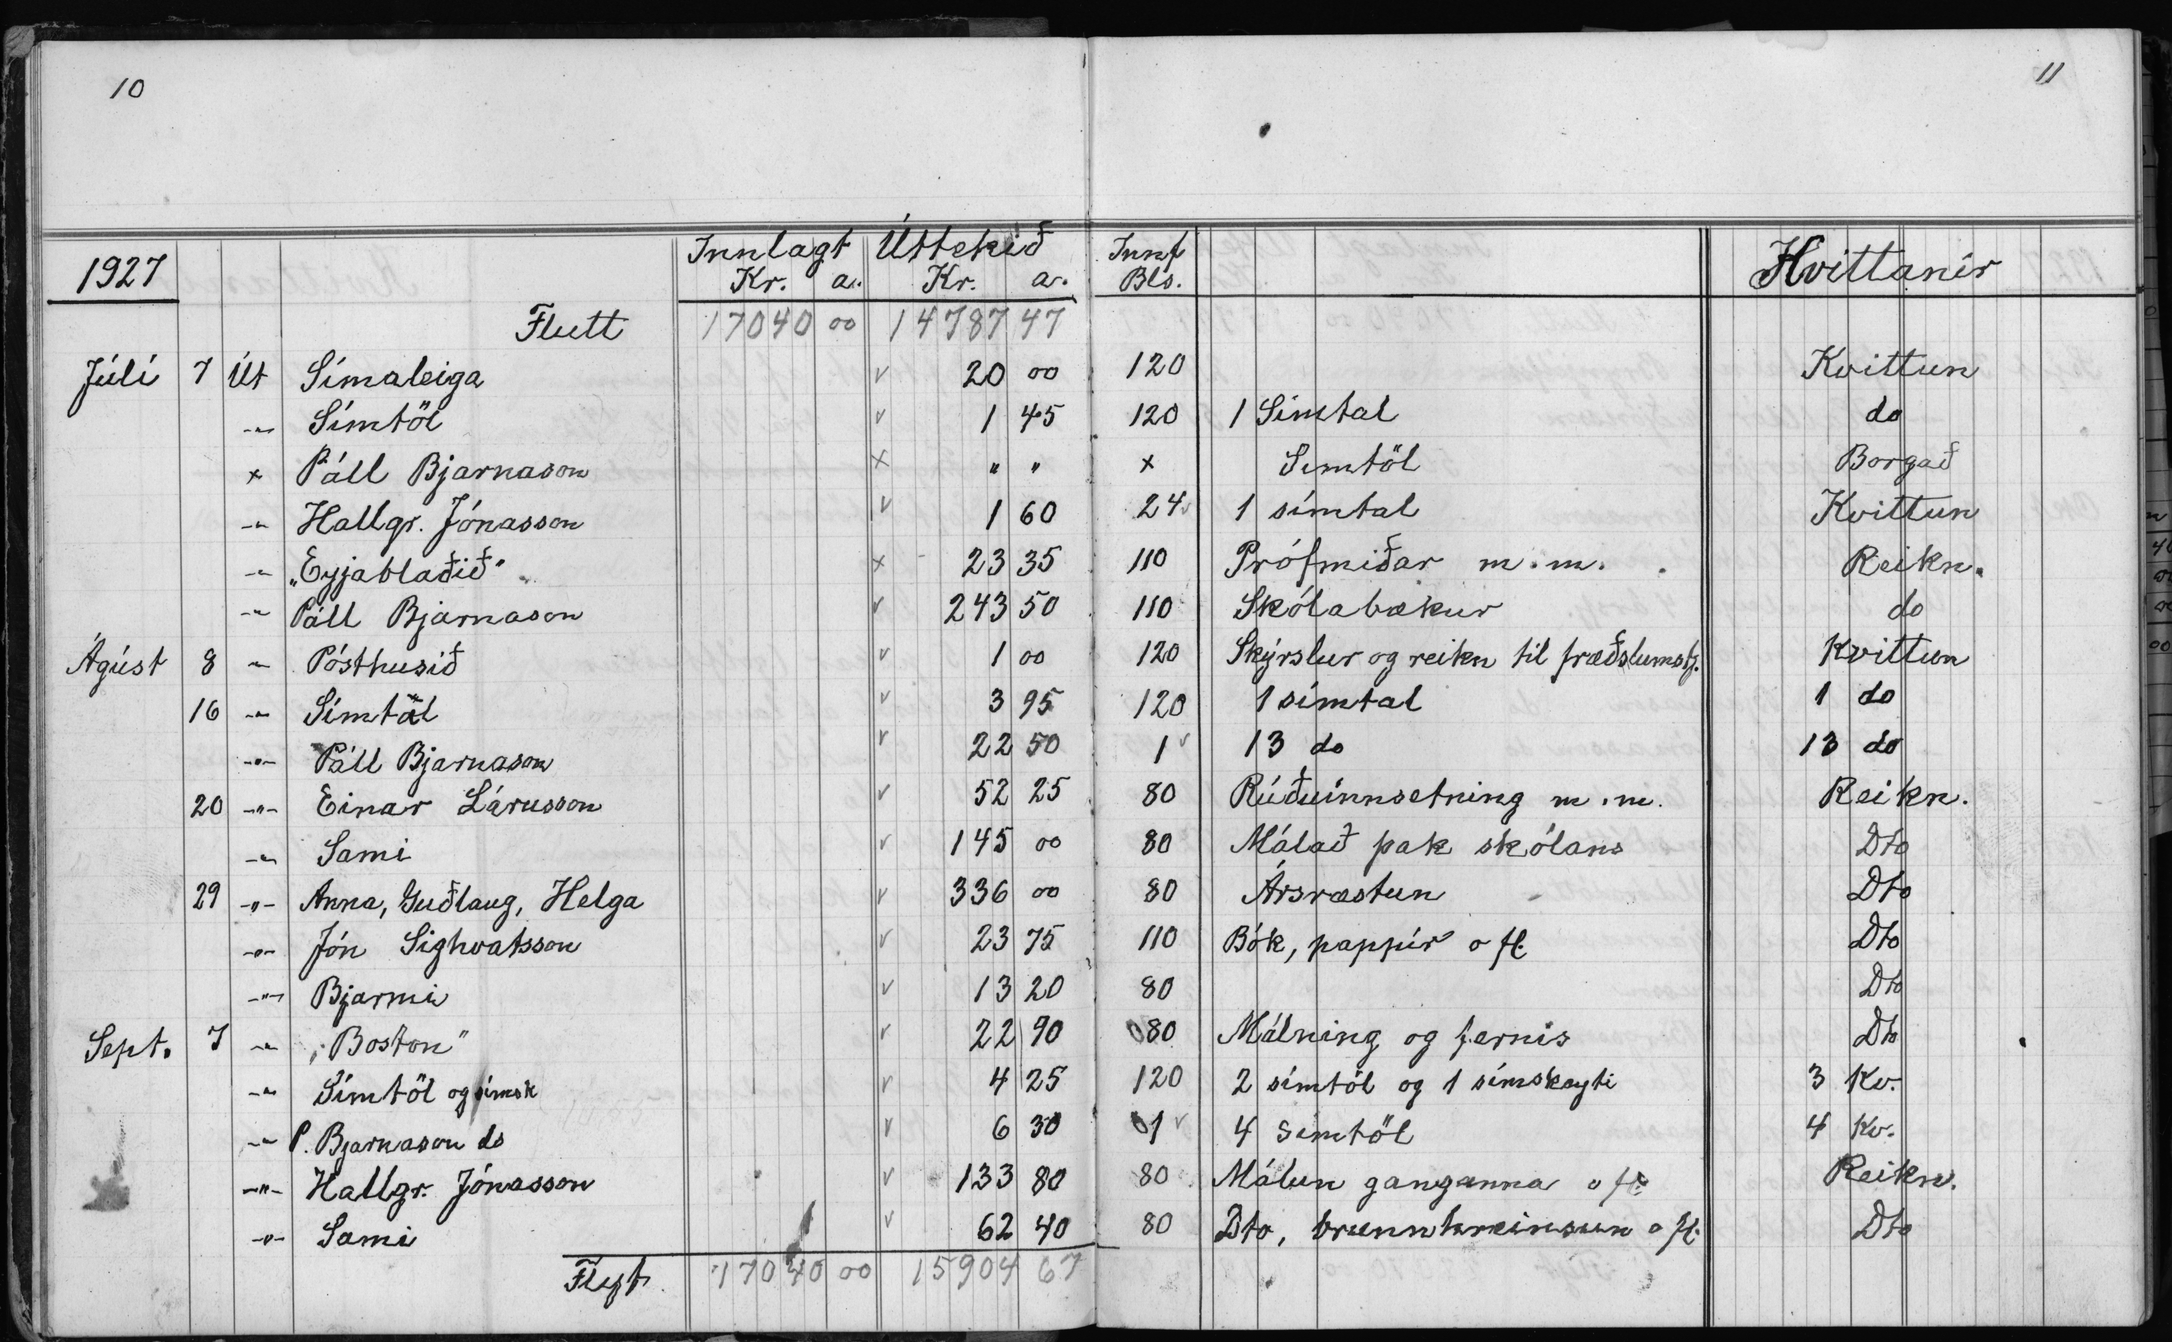 10
11
1927 Innlagt Úttekið Innf Kvittanir
Kr. a. Kr. a. Bls.
Flutt 17040 00 14787 47
Júlí 7 Út Símaleiga v 20 00 120 Kvittun
-"- Símtöl v 1 45 120 1 Símtal do
x Páll Bjarnason x " " x Símtöl Borgað
-"- Hallgr. Jónasson v 1 60 24 v 1 símtal Kvittun
-"- „Eyjablaðið" x 23 35 110 Prófmiðar m.m. Reikn.
-"- Páll Bjarnason v 243 50 110 Skólabækur do
Ágúst 8 -"- Pósthusið v 1 00 120 Skýrslur og reikn til fræðslumstj. Kvittun
16 -"- Símtal v 3 95 120 1 símtal 1 do
-"- Páll Bjarnason v 22 50 1 v 13 do 13 do
20 -"- Einar Lárusson v 52 25 80 Rúðuinnsetning m.m. Reikn.
-"- Sami v 145 00 80 Málað þak skólans Dto
29 -"- Anna, Guðlaug, Helga v 336 00 80 Ársræstun Dto
-"- Jón Sighvatsson v 23 75 110 Bók, pappír o fl. Dto
-"- Bjarmi v 13 20 80 Dto
Sept. 7 -"- „Boston" v 22 90 80 Málning og fernis Dto
-"- Símtöl og símsk v 4 25 120 2 símtöl og 1 símskeyti 3 Kv.
-"- P. Bjarnason do v 6 30 1 v 4 símtöl 4 Kv.
-"- Hallgr. Jónasson v 133 80 80 Málun ganganna o fl. Reikn.
-"- Sami v 62 40 80 Dto, brunnhreinsun o fl. Dto
Flyt 17040 00 15904 67